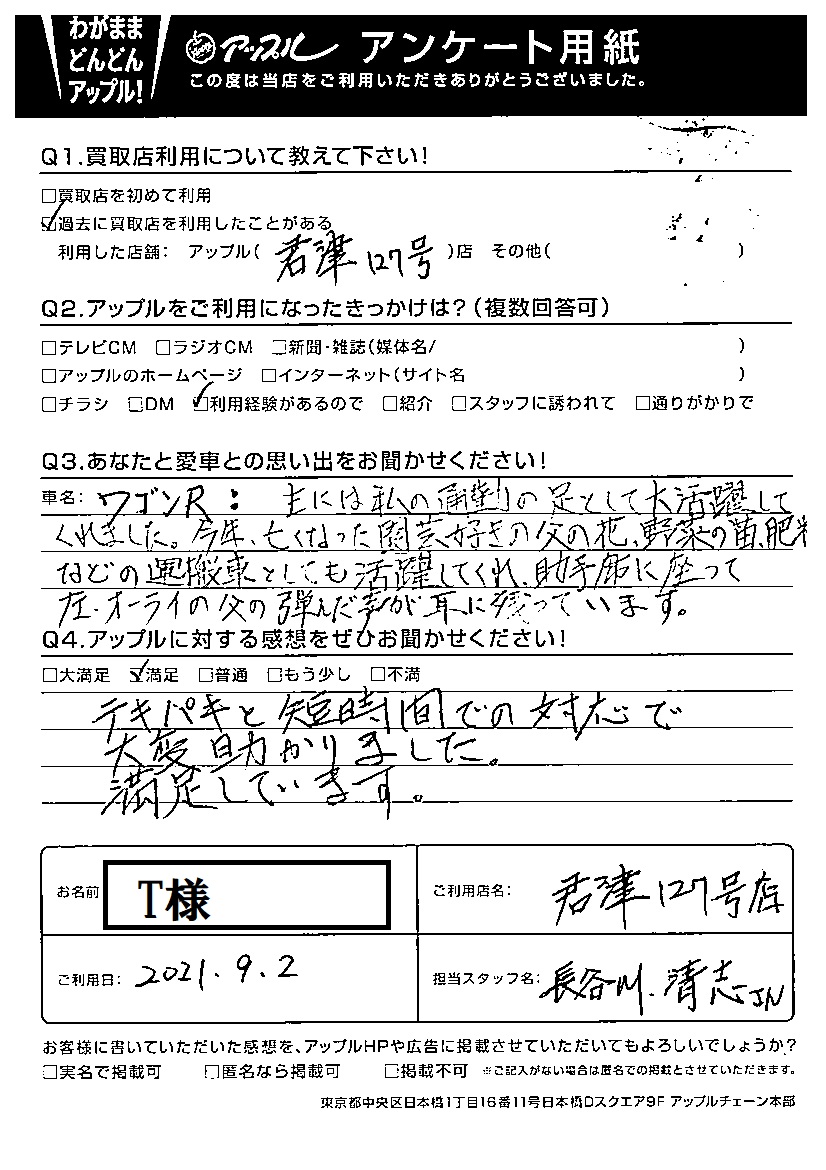 わがまま
どんどん
アップル!
アップル アンケート用紙
この度は当店をご利用いただきありがとうございました。
Q1.買取店利用について教えて下さい!
□買取店を初めて利用
☑過去に買取店を利用したことがある
利用した店舗: アップル( 君津127号 )店 その他( )
Q2.アップルをご利用になったきっかけは?(複数回答可)
□テレビCM □ラジオCM □新聞・雑誌(媒体名/ )
□アップルのホームページ □インターネット(サイト名 )
□チラシ □DM ☑利用経験があるので □紹介 □スタッフに誘われて □通りがかりで
Q3.あなたと愛車との思い出をお聞かせください!
車名: ワゴンR: 主には私の通勤の足として大活躍して
くれました。今年、亡くなった園芸好きの父の花、野菜の苗、肥料
などの運搬車としても活躍してくれ、助手席に座って
左・オーライの父の弾んだ声が耳に残っています。
Q4.アップルに対する感想をぜひお聞かせください!
□大満足 ☑満足 □普通 □もう少し □不満
テキパキと短時間での対応で
大変助かりました。
満足しています。
お名前 T様 ご利用店名: 君津127号店
ご利用日: 2021.9.2 担当スタッフ名: 長谷川.清志
お客様に書いていただいた感想を、アップルHPや広告に掲載させていただいてもよろしいでしょうか?
□実名で掲載可 □匿名なら掲載可 □掲載不可 ※ご記入がない場合は匿名での掲載とさせていただきます。
東京都中央区日本橋1丁目16番11号日本橋Dスクエア9F アップルチェーン本部